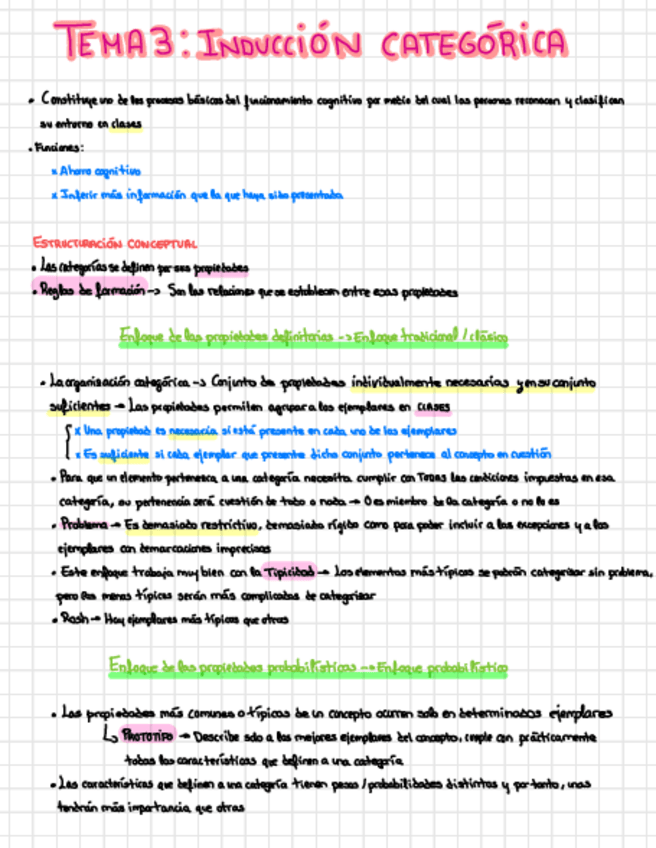 TEMA 3: INDUCCIÓN CATEGÓRICA
• Constituye uno de los procesos básicos del funcionamiento cognitivo por medio del cual las personas reconocen y clasifican
su entorno en clases
• Funciones:
x Ahorro cognitivo
x Inferir más información que la que haya sido presentada
ESTRUCTURACIÓN CONCEPTUAL
• Las categorías se definen por sus propiedades
• Reglas de formación -> Son las relaciones que se establecen entre esas propiedades
Enfoque de las propiedades definitorias -> Enfoque tradicional / clásico
• La organización categórica -> Conjunto de propiedades individualmente necesarias y en su conjunto
suficientes → Las propiedades permiten agrupar a los ejemplares en CLASES
x Una propiedad es necesaria si está presente en cada uno de los ejemplares
x Es suficiente si cada ejemplar que presente dicho conjunto pertenece al concepto en cuestión
• Para que un elemento pertenezca a una categoría necesita cumplir con TODAS las condiciones impuestas en esa
categoría, su pertenencia será cuestión de todo o nada → O es miembro de la categoría o no lo es
• Problema → Es demasiado restrictivo, demasiado rígido como para poder incluir a las excepciones y a los
ejemplares con demarcaciones imprecisas
• Este enfoque trabaja muy bien con la Tipicidad → Los elementos más típicos se podrán categorizar sin problema,
pero los menos típicos serán más complicados de categorizar
• Rosh → Hay ejemplares más típicos que otros
Enfoque de las propiedades probabilísticas -> Enfoque probabilístico
• Las propiedades más comunes o típicas de un concepto ocurren solo en determinados ejemplares
↳ PROTOTIPO → Describe sólo a los mejores ejemplares del concepto, cumple con prácticamente
todas las características que definen a una categoría
• Las características que definen a una categoría tienen pesos / probabilidades distintos y por tanto, unas
tendrán más importancia que otras